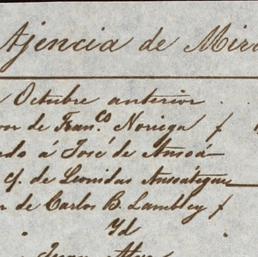 Ajencia de Mir
Octubre anterior
or de Fran.co Noriega f
do á José de Ansoá
c/. de Leonidas Ansoategui
r de Carlos B. Lambley f
Yd